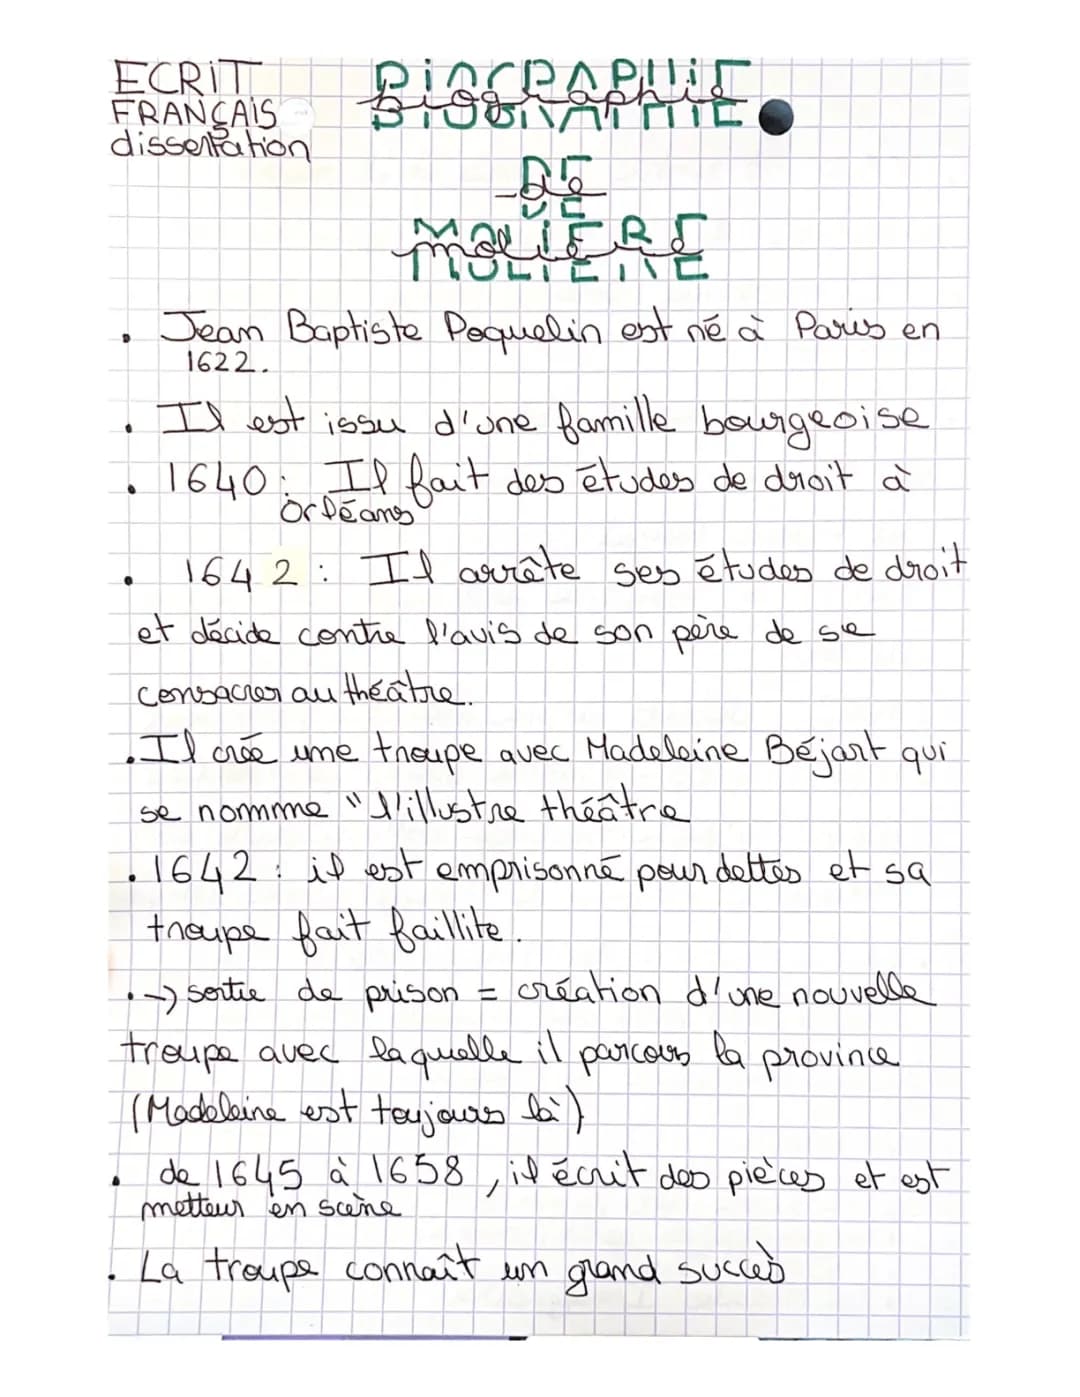 ECRIT
FRANÇAIS
dissertation
BIOGRAPHIE
biographie
DE
de
MOLIERE
molière
. Jean Baptiste Poquelin est né à Paris en
1622.
. Il est issu d'une famille bourgeoise
. 1640 : Il fait des études de droit à
Orléans
. 1642 : Il arrête ses études de droit
et décide contre l'avis de son père de se
consacrer au théâtre.
. Il crée une troupe avec Madeleine Béjart qui
se nomme "l'illustre théâtre
. 1642 : il est emprisonné pour dettes et sa
troupe fait faillite.
. → sortie de prison = création d'une nouvelle
troupe avec laquelle il parcours la province
(Madeleine est toujours là)
. de 1645 à 1658, il écrit des pièces et est
metteur en scène
. La troupe connaît un grand succès